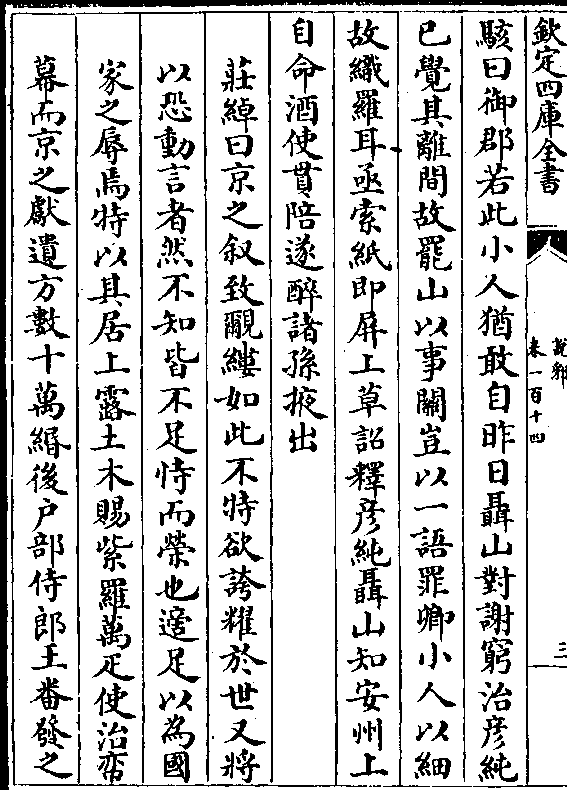 欽定四庫全書
說郛
卷一百十四
三
駭曰御郡若此小人猶敢自昨日聶山對謝窮治彥純
已覺其離間故罷山以事關豈以一語罪卿小人以細
故織羅耳亟索紙即屏上草詔釋彥純聶山知安州上
自命酒使貫陪遂醉諸孫掖出
莊綽曰京之叙致覼縷如此不特欲誇耀於世又將
以恐動言者然不知皆不足恃而榮也適足以為國
家之辱焉特以其居上露土木賜紫羅萬疋使治帟
幕而京之獻遺方數十萬緡後户部侍郎王番發之